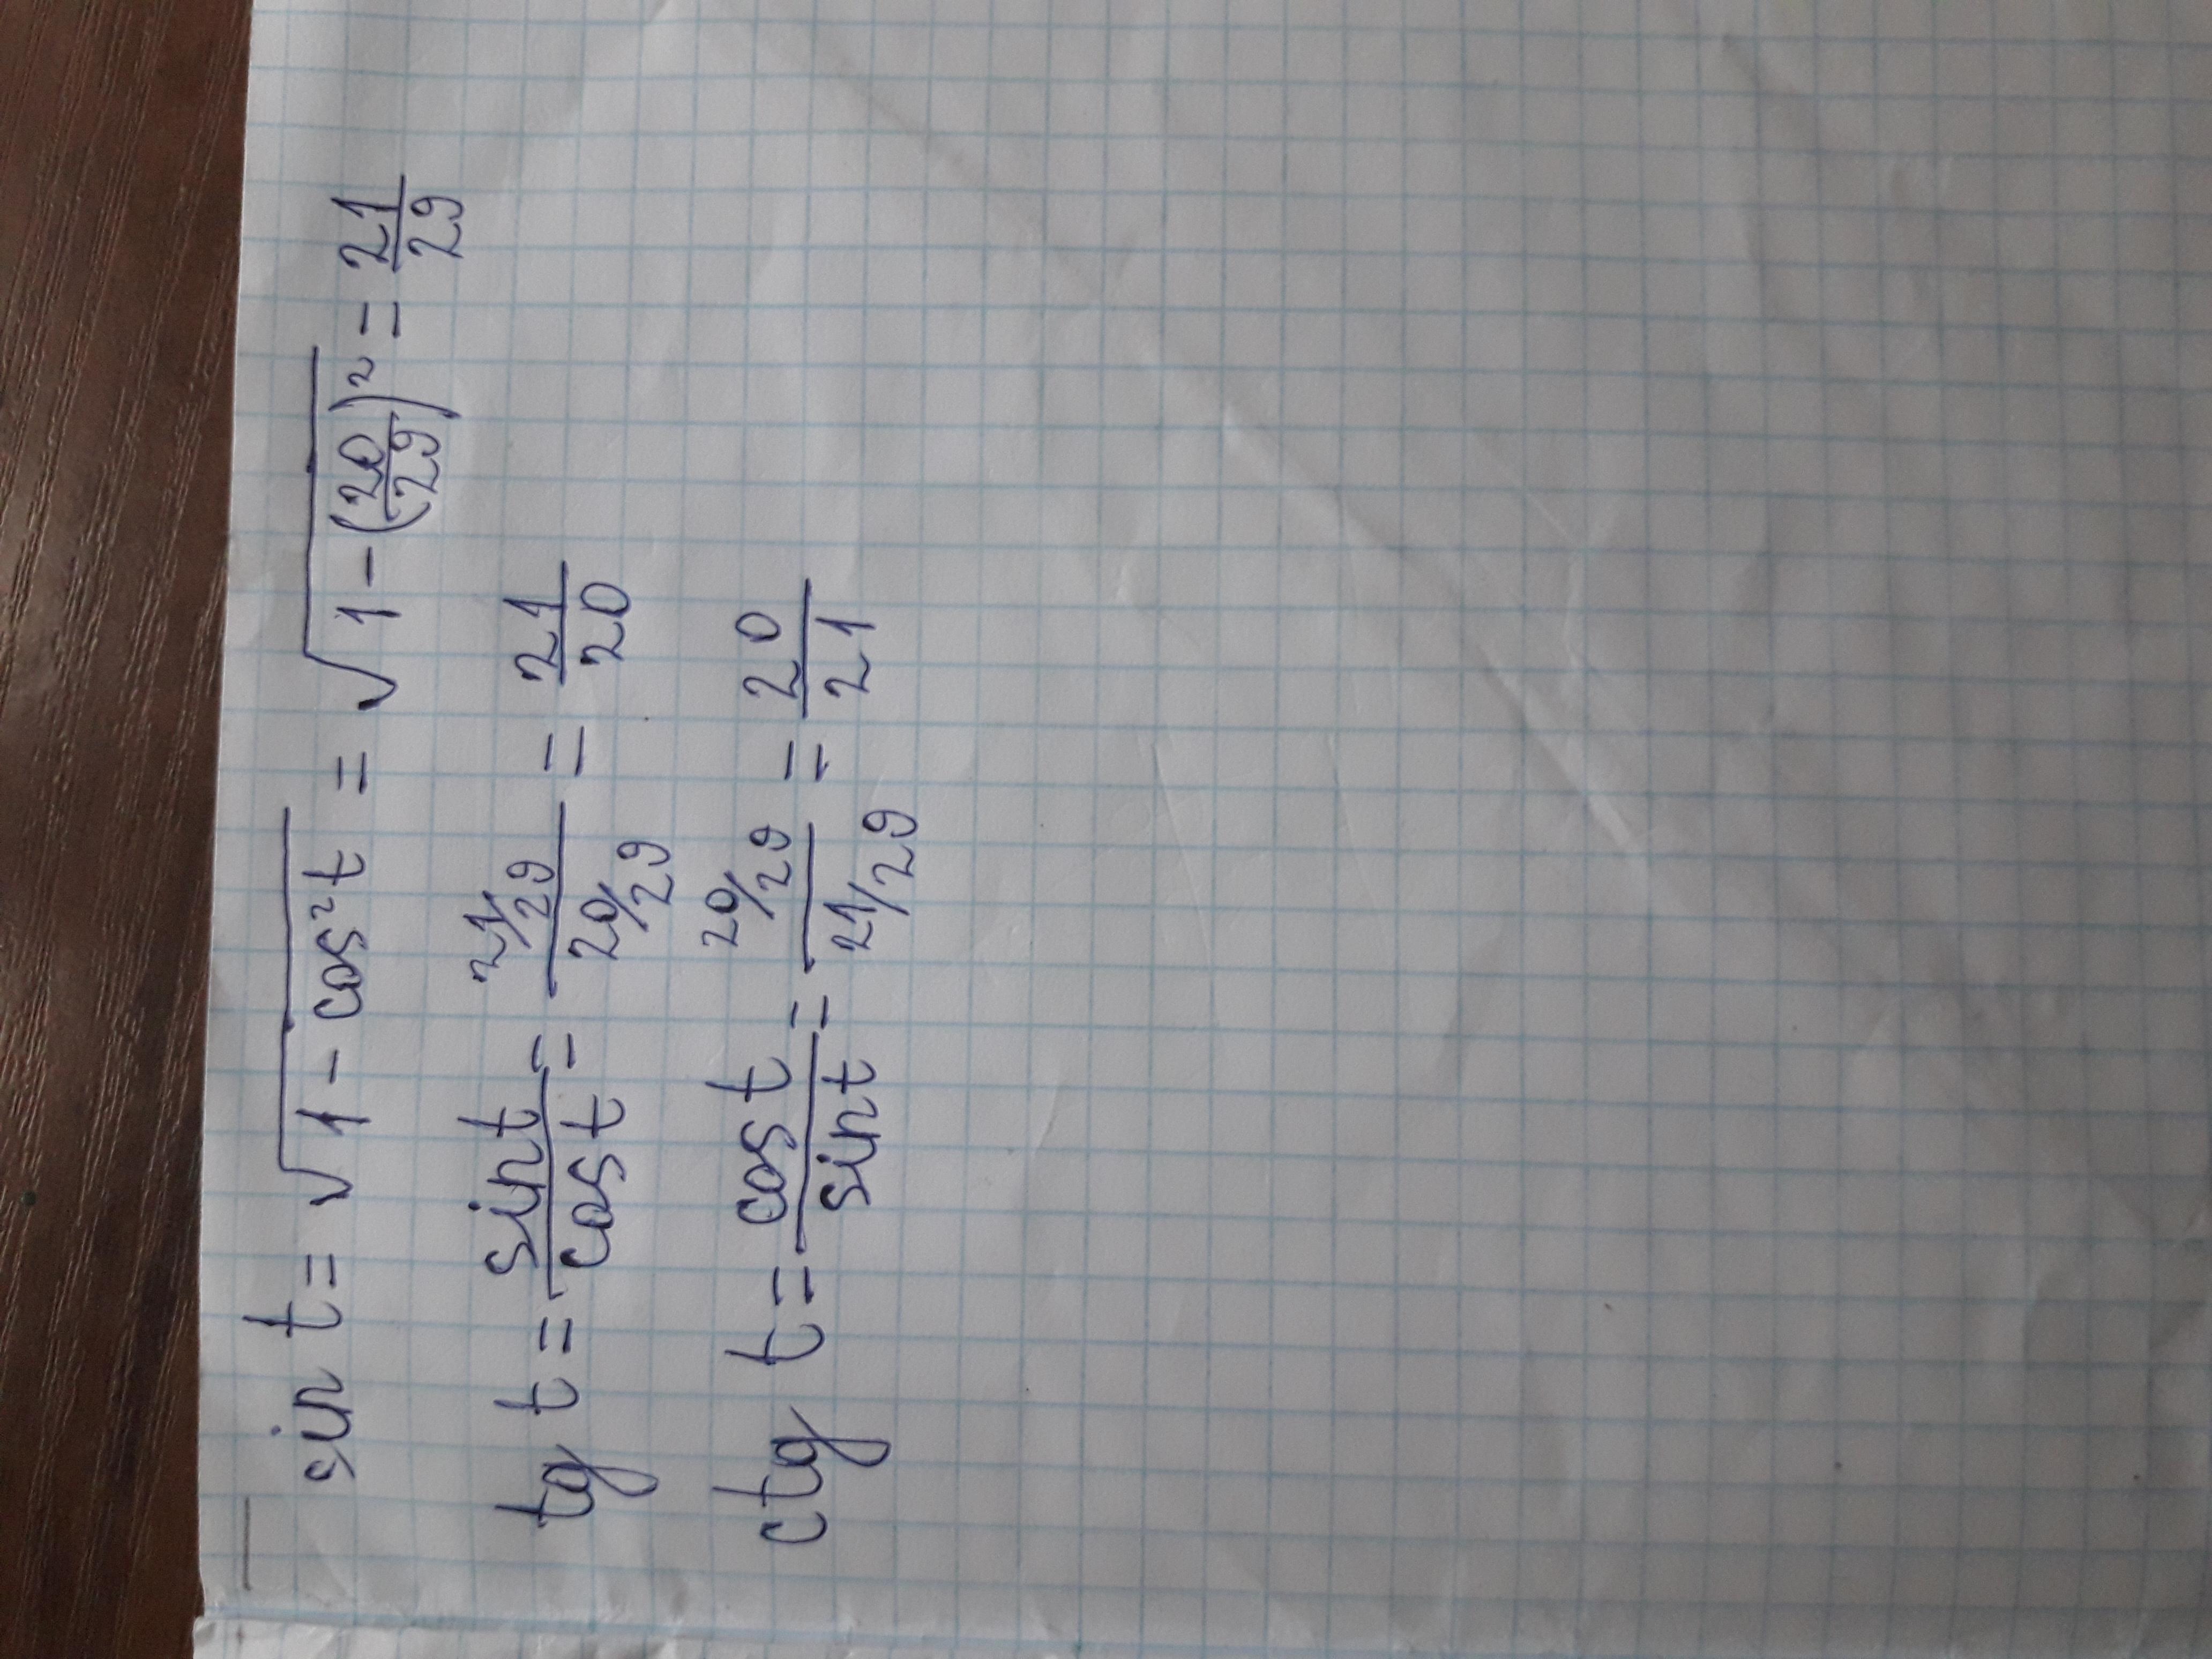 sin t = √(1 - cos²t) = √(1 - (20/29)²) = 21/29
tg t = sin t/cos t = (21/29)/(20/29) = 21/20
ctg t = cos t/sin t = (20/29)/(21/29) = 20/21